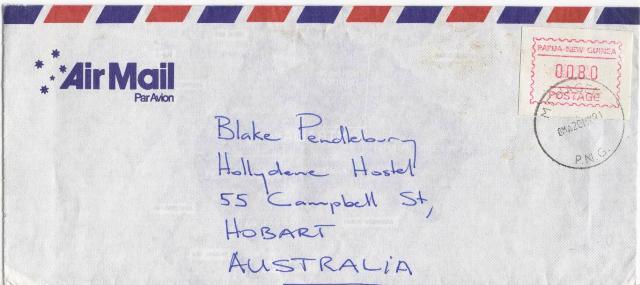 Air Mail
Par Avion
PAPUA-NEW GUINEA
00.80
POSTAGE
P.N.G.
Blake Pendlebury
Hollydene Hostel
55 Campbell St,
HOBART
AUSTRALIA